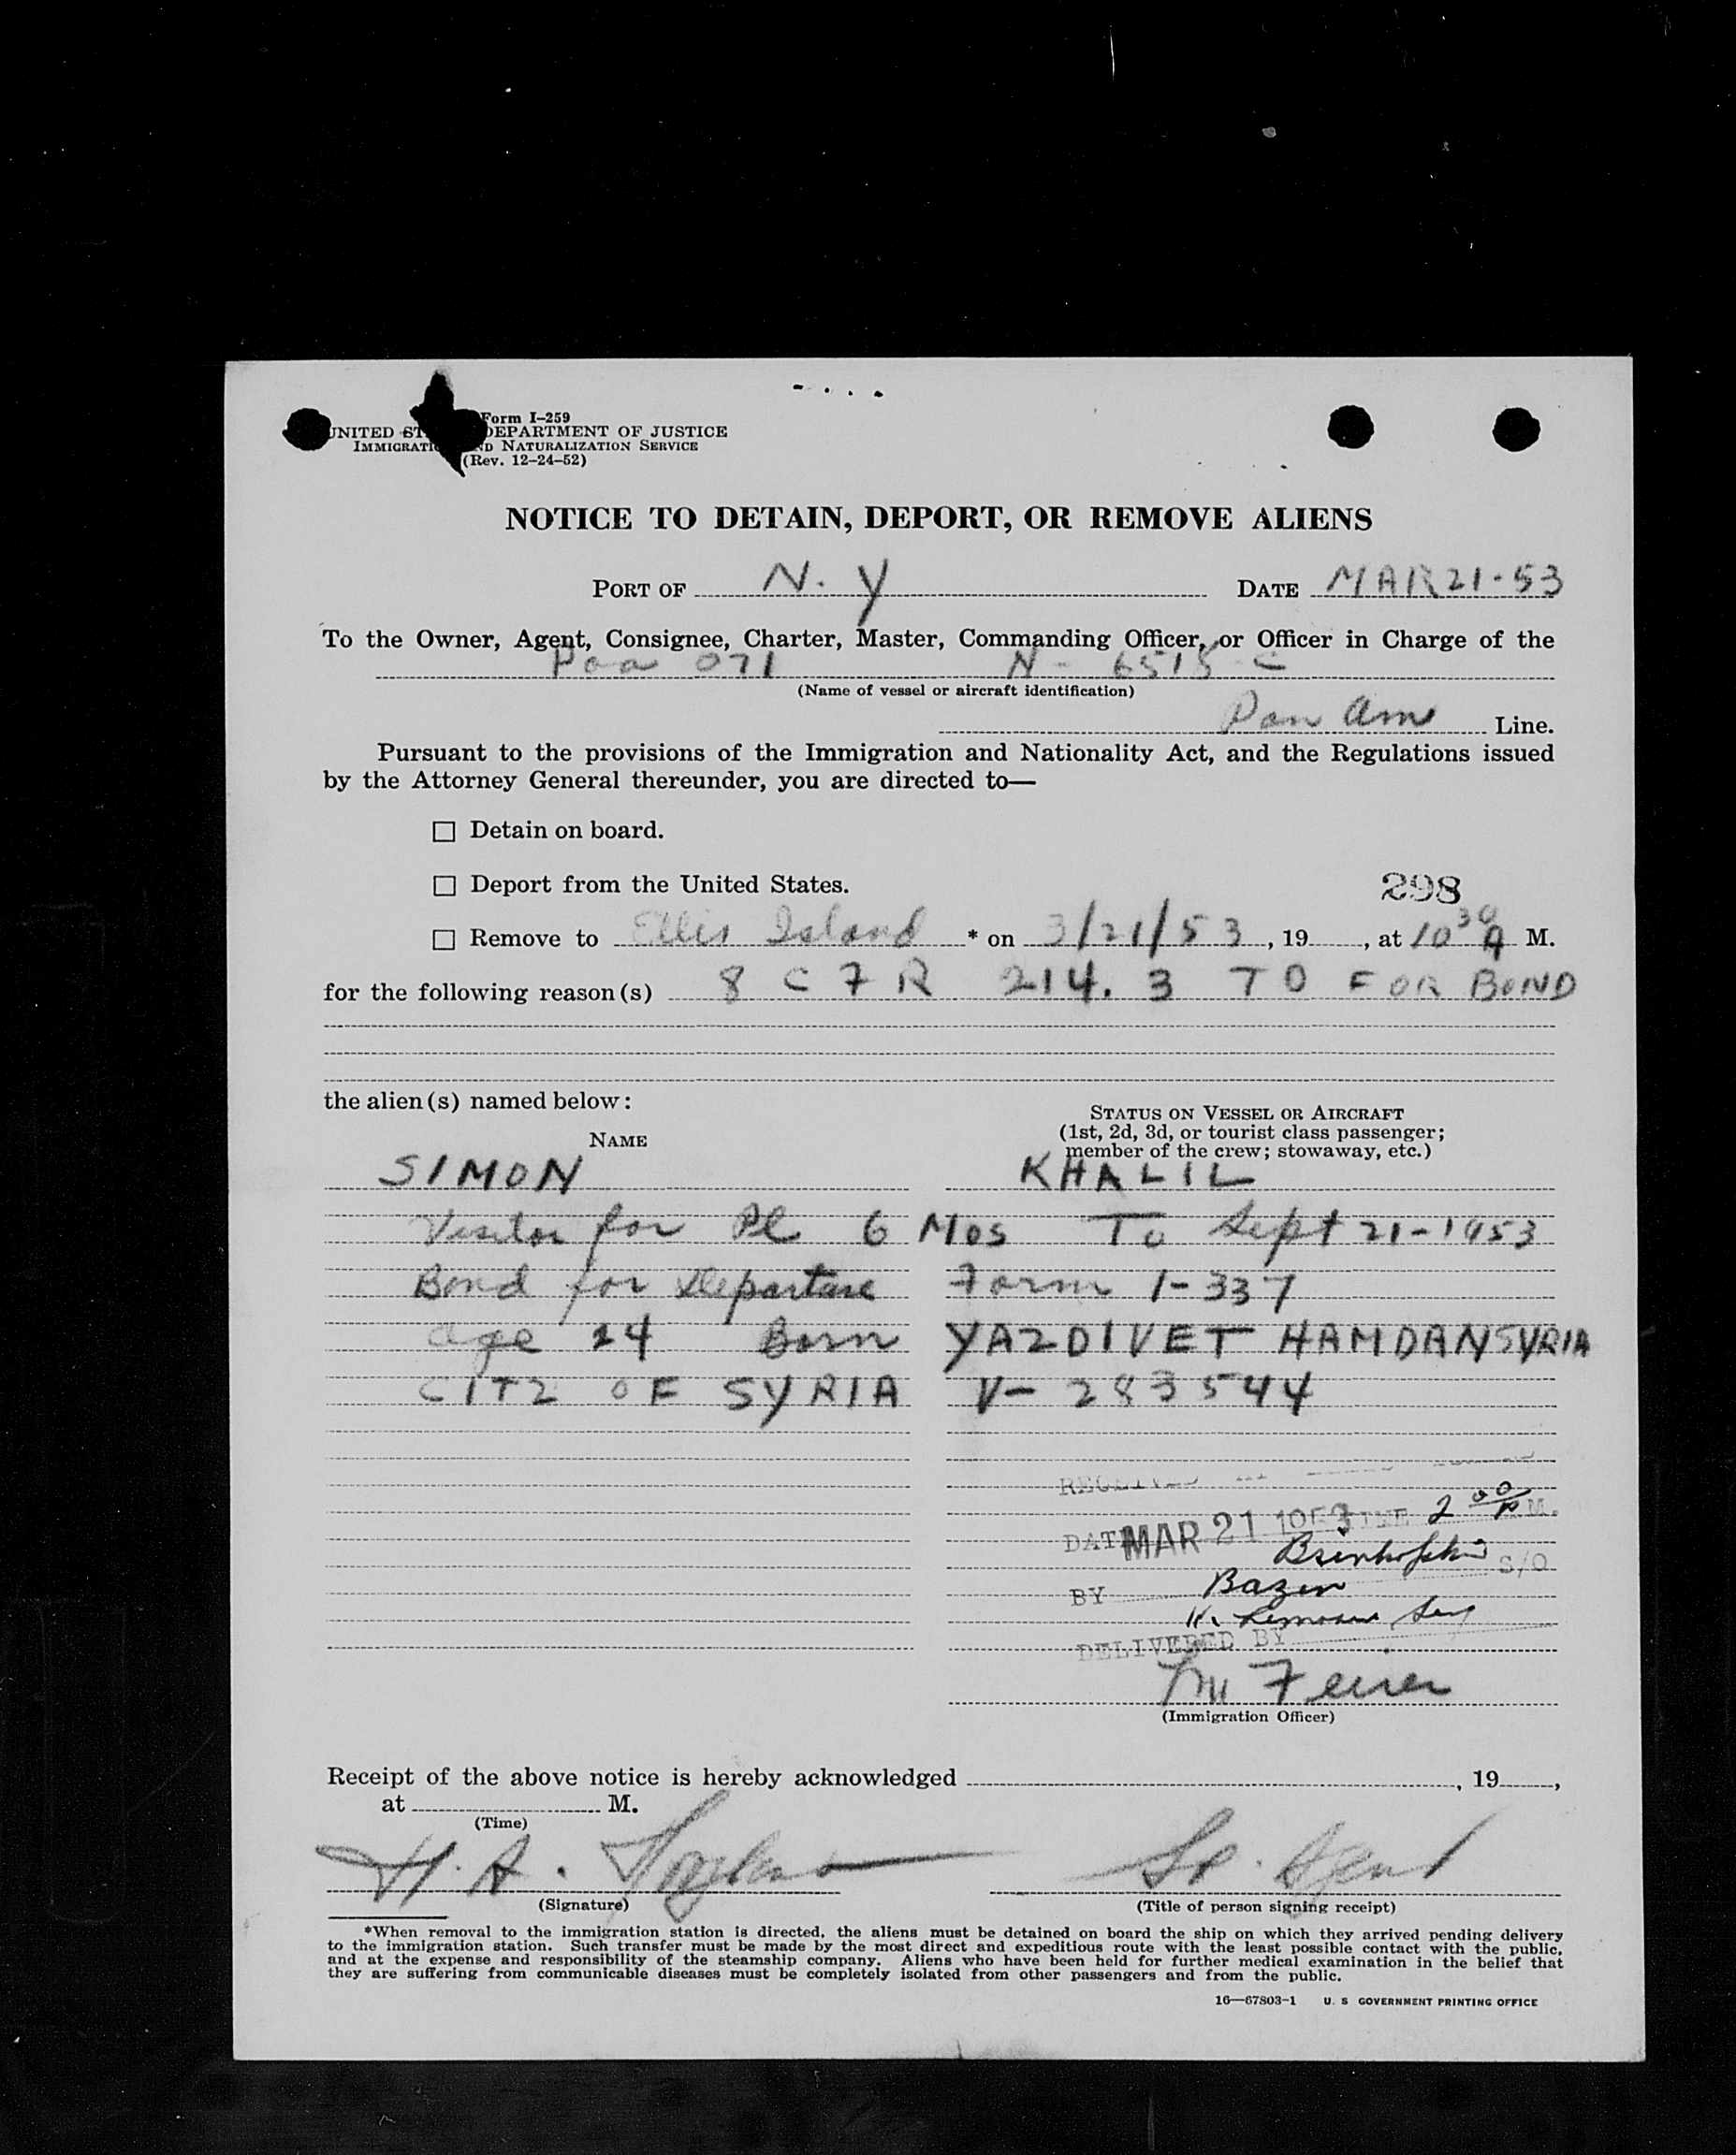 Form I-259
UNITED ST DEPARTMENT OF JUSTICE
IMMIGRATI ND NATURALIZATION SERVICE
(Rev. 12-24-52)
NOTICE TO DETAIN, DEPORT, OR REMOVE ALIENS
PORT OF N. Y DATE MAR 21-53
To the Owner, Agent, Consignee, Charter, Master, Commanding Officer, or Officer in Charge of the
Paa 071 N- 6515 C
(Name of vessel or aircraft identification)
Pan Am Line.
Pursuant to the provisions of the Immigration and Nationality Act, and the Regulations issued
by the Attorney General thereunder, you are directed to—
☐ Detain on board.
☐ Deport from the United States.
298
☐ Remove to Ellis Island * on 3/21/53, 19, at 10 30 A M.
for the following reason(s) 8 C F R 214. 3 TO FOR BOND
the alien(s) named below:
NAME
STATUS ON VESSEL OR AIRCRAFT
(1st, 2d, 3d, or tourist class passenger;
member of the crew; stowaway, etc.)
SIMON KHALIL
Visitor for Pl 6 Mos To Sept 21-1953
Bond for Departure Form 1-337
Age 24 Born YAZDIVET HAMDAN SYRIA
CITZ OF SYRIA V- 283544
RECEIVED
DATE MAR 21 1953 TIME 2 00 P M.
S/O
BY Bazin
DELIVERED BY
(Immigration Officer)
Receipt of the above notice is hereby acknowledged , 19 ,
at M.
(Time)
H. A. Sp. Agent
(Signature) (Title of person signing receipt)
*When removal to the immigration station is directed, the aliens must be detained on board the ship on which they arrived pending delivery
to the immigration station. Such transfer must be made by the most direct and expeditious route with the least possible contact with the public,
and at the expense and responsibility of the steamship company. Aliens who have been held for further medical examination in the belief that
they are suffering from communicable diseases must be completely isolated from other passengers and from the public.
16—67803-1 U. S GOVERNMENT PRINTING OFFICE